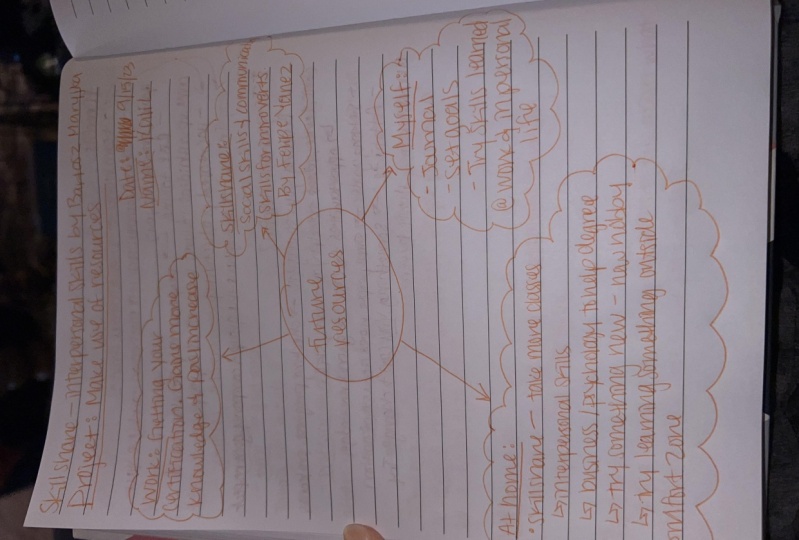 Skillshare - interpersonal skills by
Project: Make use of resources
Date: 9/15/23
Name:
Work: Getting
certification. Gain more
knowledge & pay increase
Skillshare:
Social skills & communication
skills for introverts
By Felipe Yanez
Future
resources
Myself:
- Journal
- Set goals
- Try skills learned
@ work & in personal
life
At Home:
• Skillshare - take more classes
↳ interpersonal skills
↳ business / psychology to help degree
↳ try something new - new hobby
↳ try learning something outside
comfort zone